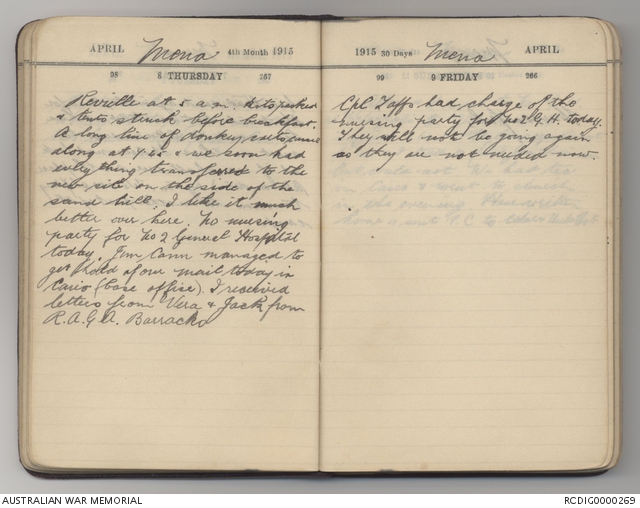 APRIL Mena 4th Month 1915
98 8 THURSDAY 267
Reveille at 5 a.m. kits packed
& tents struck before breakfast.
A long line of donkey carts came
along at 7.25 & we soon had
everything transferred to the
new site on the side of the
sand hill. I like it much
better over here. No nursing
party for No 2 General Hospital
today. Jim Cann managed to
get hold of our mail today in
Cairo (base office). I received
letters from Vera & Jack from
R.A.G.A. Barracks
1915 30 Days Mena APRIL
99 9 FRIDAY 266
Cpl Taffs had charge of the
nursing party for No 2 G.H. today.
They will not be going again
as they are not needed now.
had tea
in Cairo & went to church
in the evening
P.C. to
AUSTRALIAN WAR MEMORIAL
RCDIG0000269